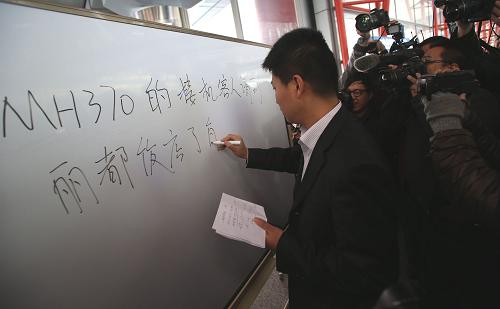 MH370的接机客人请到
丽都饭店了